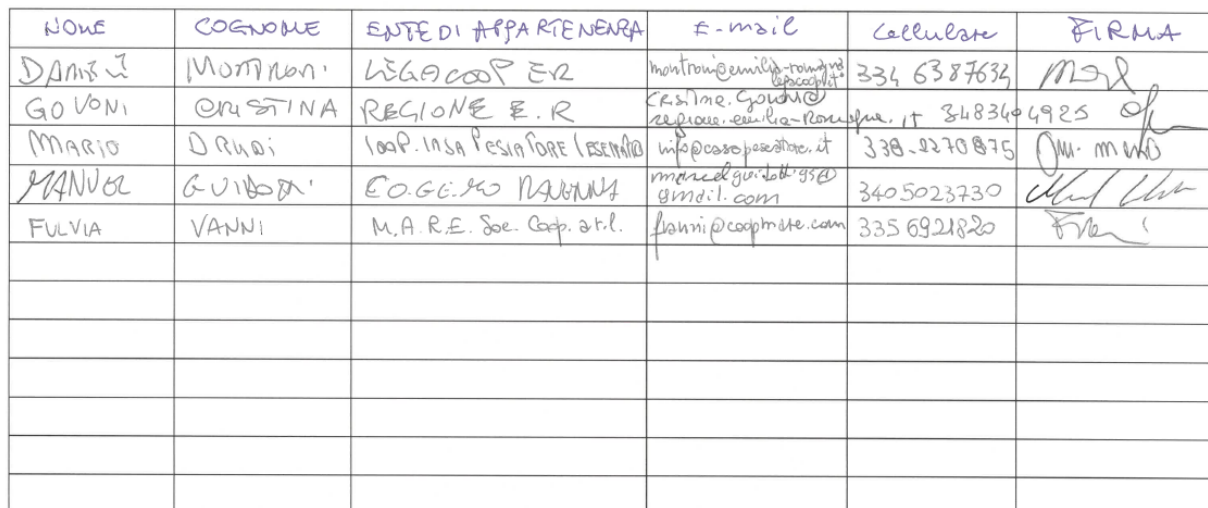 NOME COGNOME ENTE DI APPARTENENZA E-mail Cellulare FIRMA
MONTRONI LEGACOOP ER montroni@emilia-romagna.legacoop.it 334 6387634
GOVONI CRISTINA REGIONE E.R regione.emilia-romagna.it 3483404925
MARIO DRUDI COOP. CASA PESCATORE CESENATICO 338-2270875
MANUEL GUIDOTTI CO.GE.MO RAVENNA gmail.com 3405023730
FULVIA VANNI M.A.R.E. Soc. Coop. a r.l. fvanni@coopmare.com 335 6921820